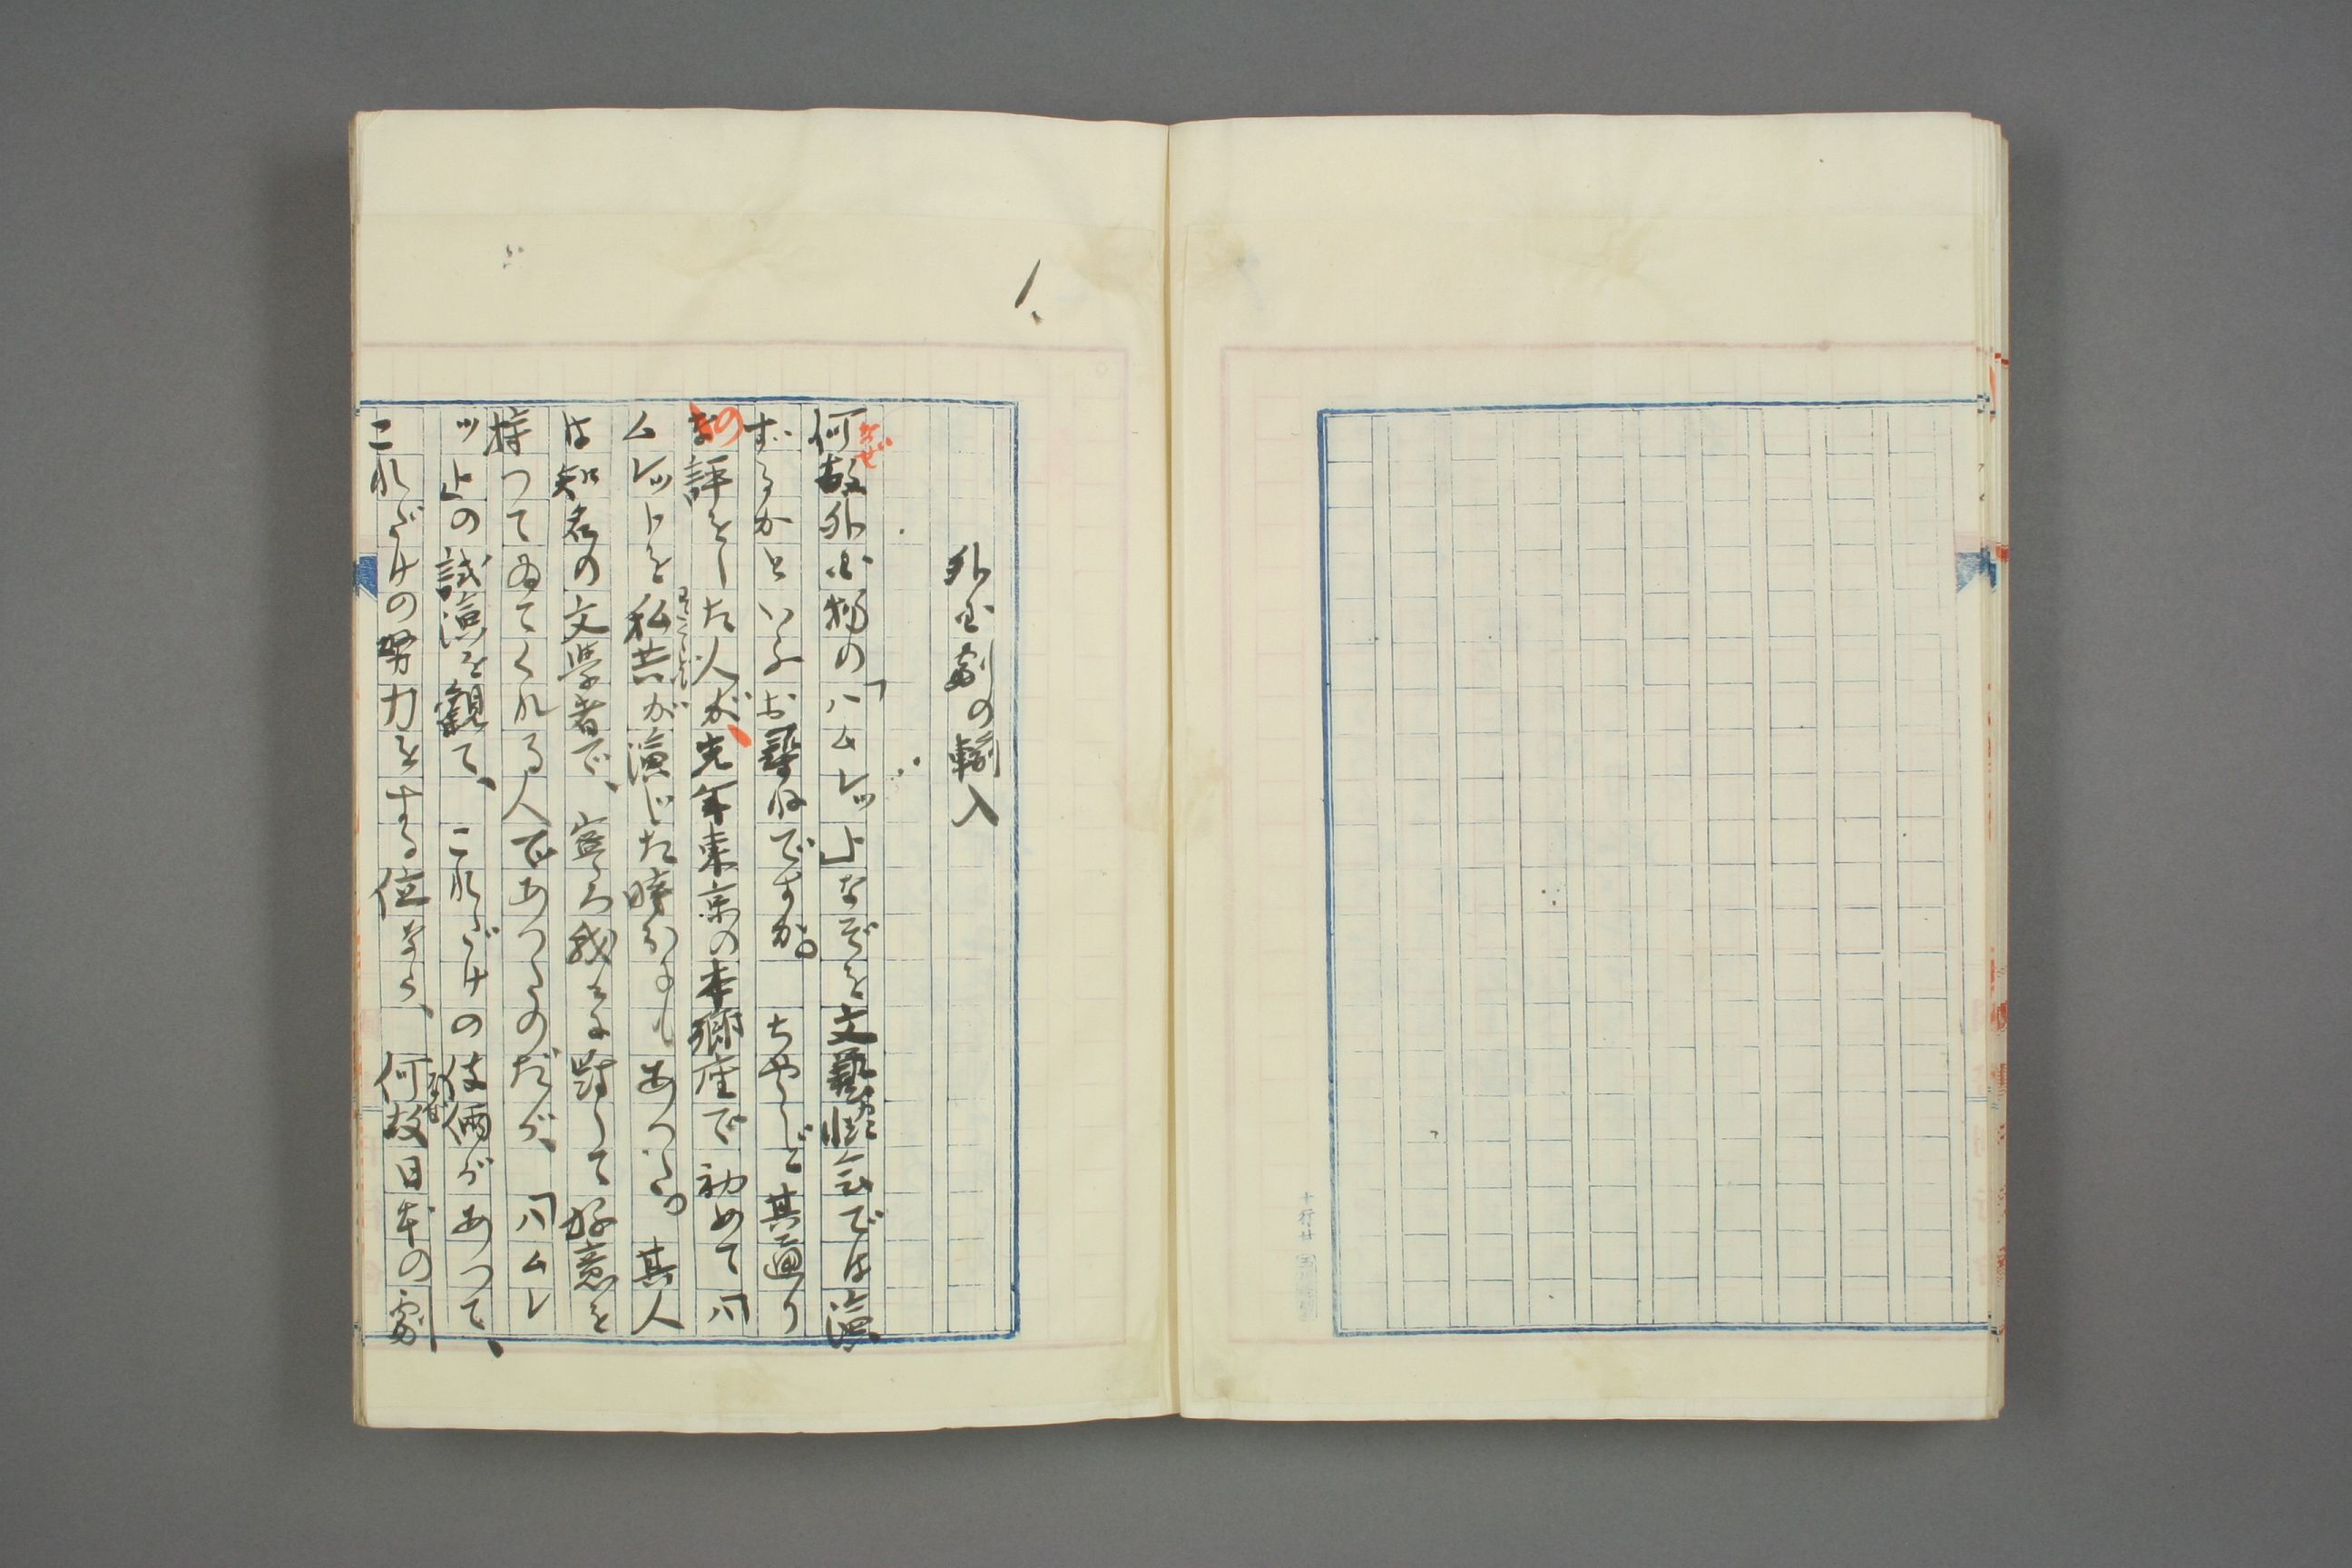 外国劇の輸入
何故外国物の「ハムレット」などを文藝協会では演
ずるかといふお尋ねですか。ちやうど其通り
の評をした人が、先年東京の本郷座で初めて「ハ
ムレット」を私共が演じた時分にもあつた。其人
は知名の文学者で、寧ろ我々に対して好意を
持つてゐてくれる人であつたのだが、「ハムレ
ット」の試演を観て、これだけの伎倆があつて、
これだけの努力をする位なら、何故日本の劇
なぜ
わたくしども
なぜ
十行廿